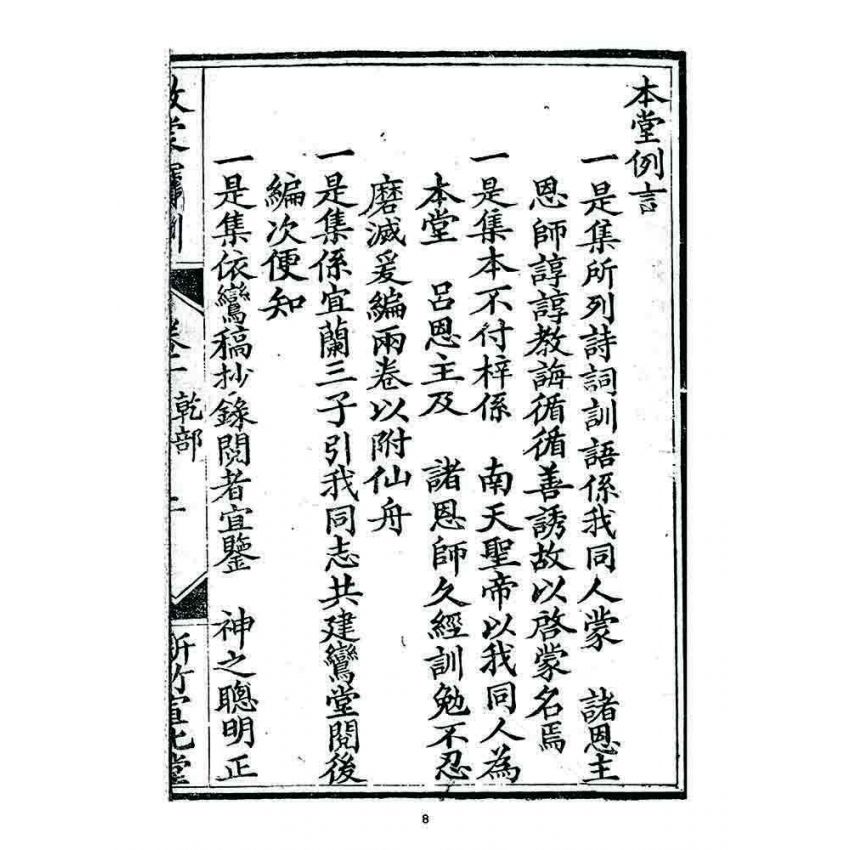 本堂例言
一是集所列詩詞訓語係我同人蒙　諸恩主
恩師諄諄教誨循循善誘故以啓蒙名焉
一是集本不付梓係　南天聖帝以我同人為
本堂　呂恩主及　諸恩師久經訓勉不忍
磨滅爰編兩卷以附仙舟
一是集係宜蘭三子引我同志共建鸞堂閱後
編次便知
一是集依鸞稿抄錄閱者宜鑒　神之聰明正
卷一　乾部
新竹宣化堂
8